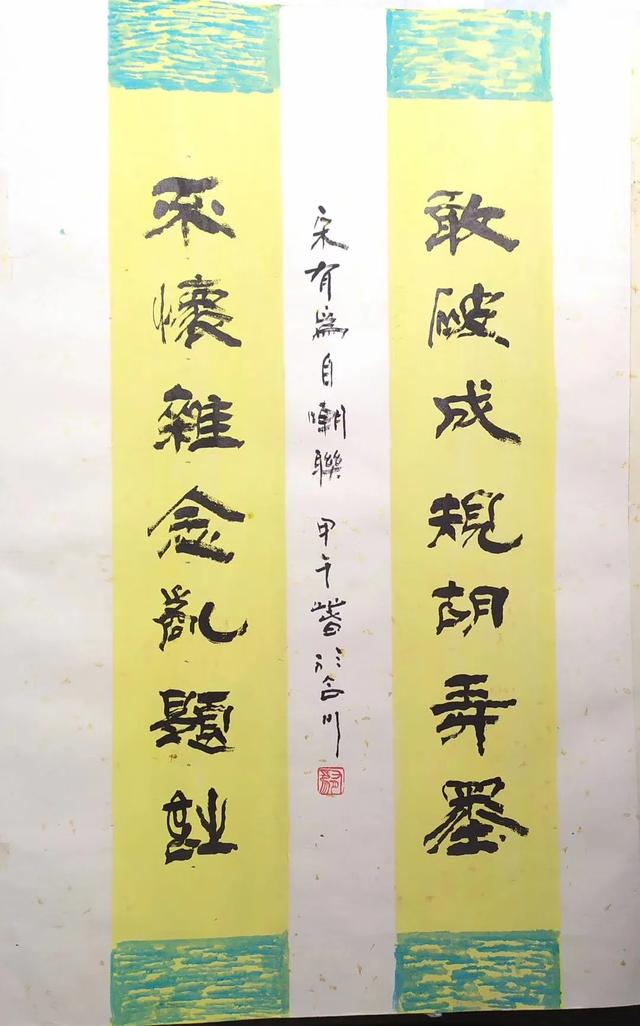 敢破成規胡弄墨
不懷雜念亂題詩
宋有為自嘲聯 甲午於合川